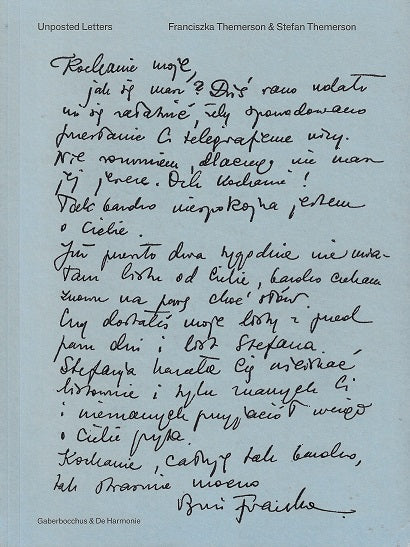 Unposted Letters
Franciszka Themerson & Stefan Themerson
Kochanie moje,
jak się masz? Dziś rano udało
mi się załatwić, żeby spowodowano
przesłanie Ci telegrafem wizy.
Nie rozumiem, dlaczego nie masz
jej jeszcze. Och Kochanie!
Tak bardzo niespokojna jestem
o Ciebie.
Już prawie dwa tygodnie nie mia-
łam listu od Ciebie, bardzo czekam
znowu na parę choć słów.
Czy dostałeś moje listy z przed
paru dni i list Stefana
Stefania kazała Cię uściskać
listownie i tylu znanych Ci
i nieznanych przyjaciół wciąż
o Ciebie pyta.
Kochanie, całuję tak bardzo,
tak strasznie mocno
Franciszka.
Gaberbocchus & De Harmonie